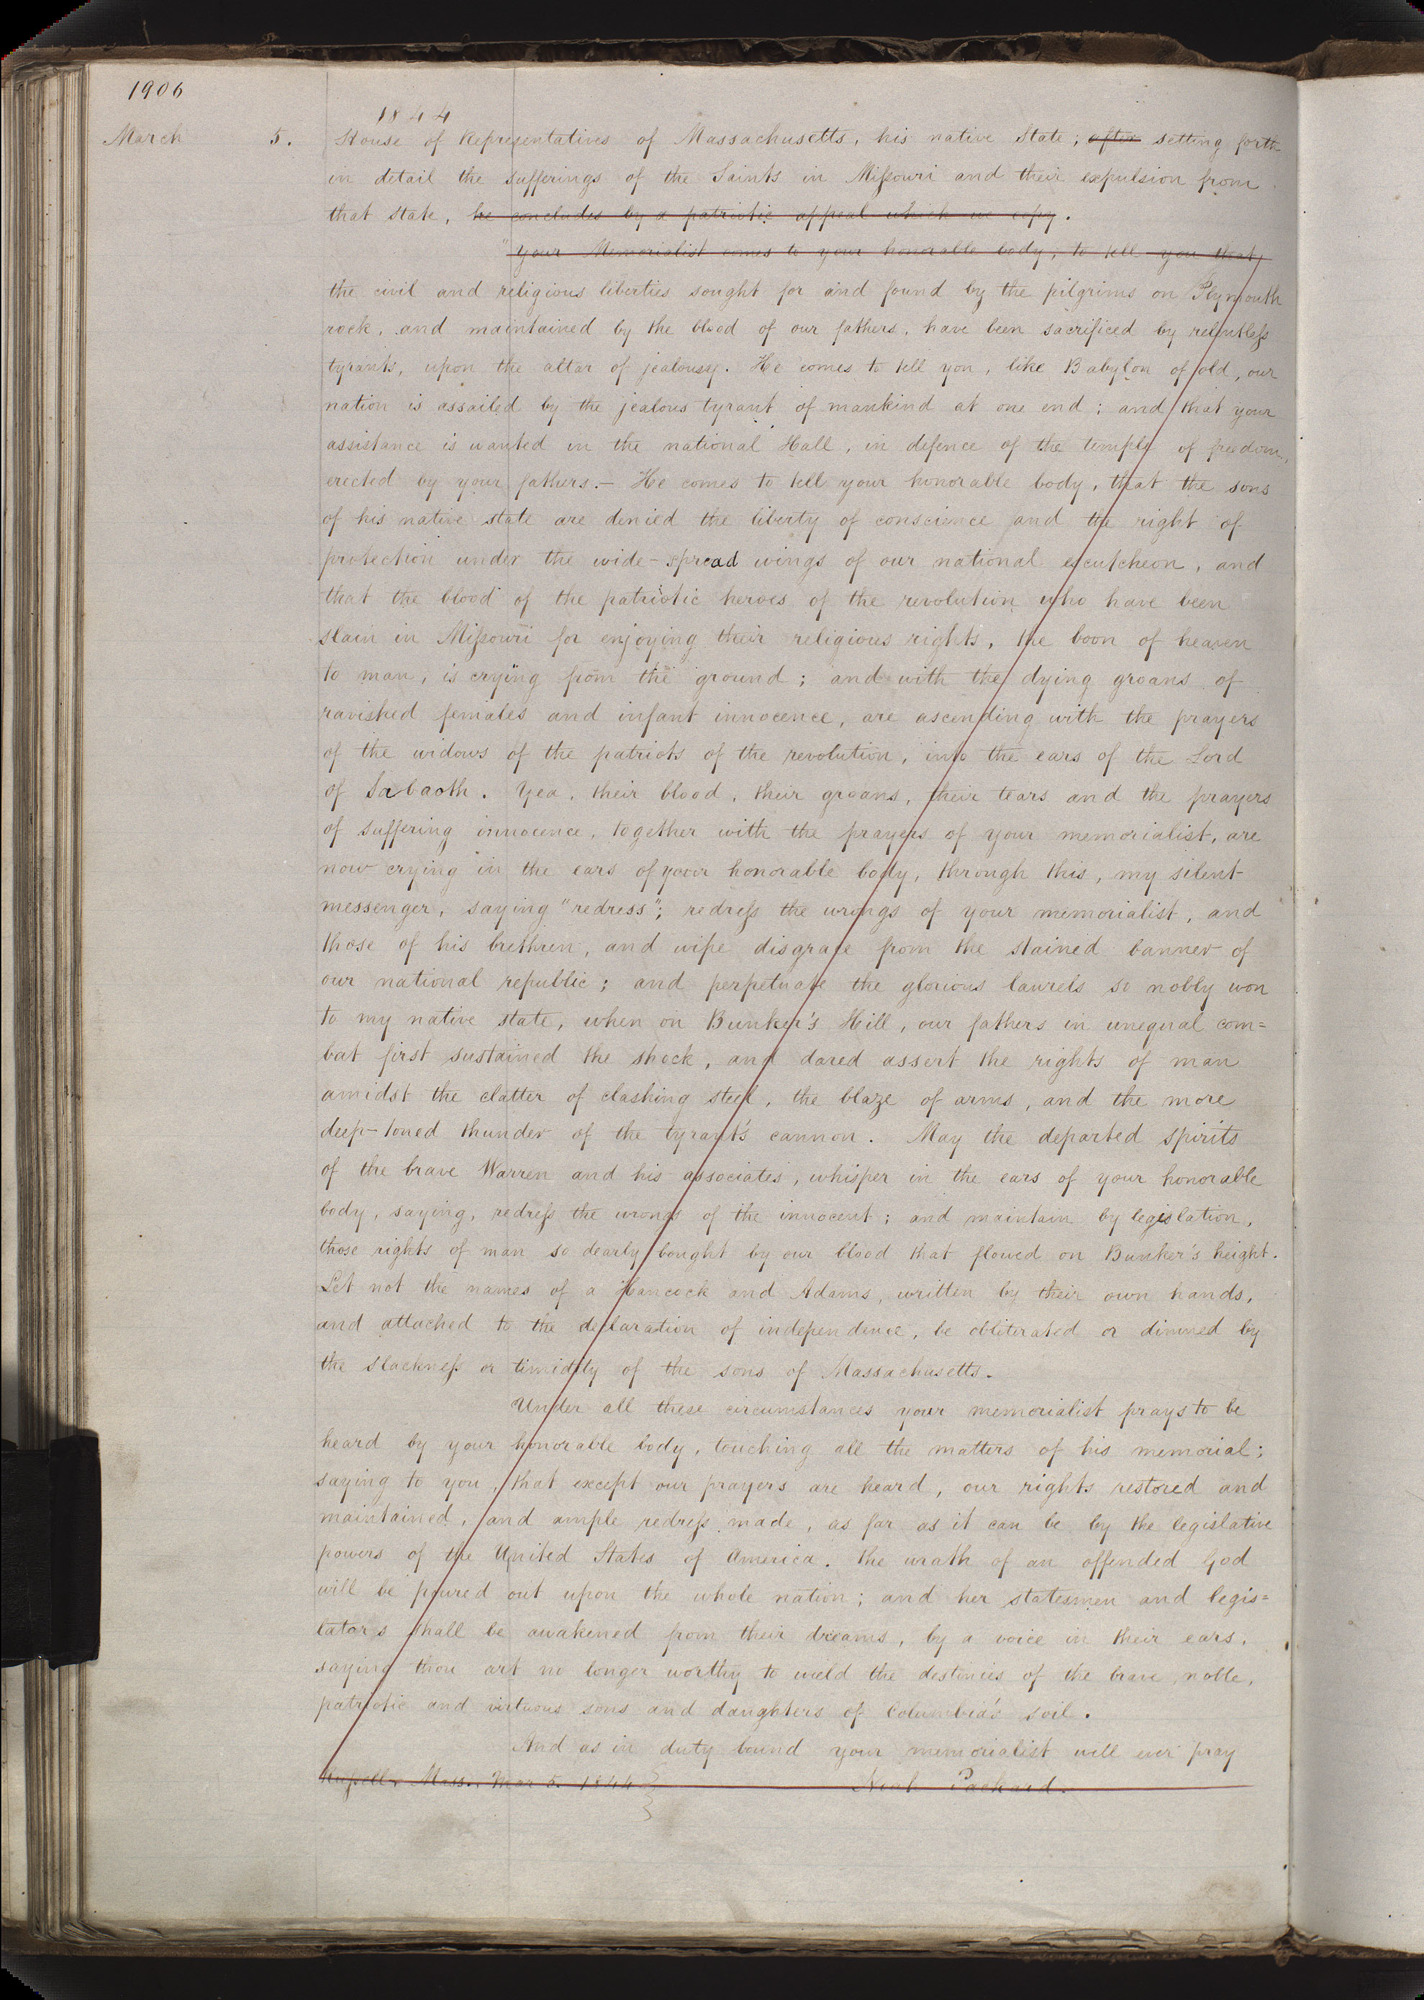 1906
1844
March 5. House of Representatives of Massachusetts, his native State; after setting forth
in detail the sufferings of the Saints in Missouri and their expulsion from
that State, he concludes by a patriotic appeal which we copy.
"Your Memorialist comes to your honorable body, to tell you that,
the civil and religious liberties sought for and found by the pilgrims on Plymouth
rock, and maintained by the blood of our fathers, have been sacrificed by relentless
tyrants, upon the altar of jealousy. He comes to tell you, like Babylon of old, our
nation is assailed by the jealous tyrant of mankind at one end; and that your
assistance is wanted in the national Hall, in defence of the temple of freedom,
erected by your fathers.— He comes to tell your honorable body, that the sons
of his native state are denied the liberty of conscience and the right of
protection under the wide-spread wings of our national escutcheon, and
that the blood of the patriotic heroes of the revolution who have been
slain in Missouri for enjoying their religious rights, the boon of heaven
to man, is crying from the ground; and with the dying groans of
ravished females and infant innocence, are ascending with the prayers
of the widows of the patriots of the revolution, into the ears of the Lord
of Sabaoth. Yea, their blood, their groans, their tears and the prayers
of suffering innocence, together with the prayers of your memorialist, are
now crying in the ears of your honorable body, through this, my silent
messenger, saying "redress"; redress the wrongs of your memorialist, and
those of his brethren, and wipe disgrace from the stained banner of
our national republic; and perpetuate the glorious laurels so nobly won
to my native state, when on Bunker's Hill, our fathers in unequal com=
bat first sustained the shock, and dared assert the rights of man
amidst the clatter of clashing steel, the blaze of arms, and the more
deep-toned thunder of the tyrant's cannon. May the departed spirits
of the brave Warren and his associates, whisper in the ears of your honorable
body, saying, redress the wrongs of the innocent; and maintain by legislation,
those rights of man so dearly bought by our blood that flowed on Bunker's height.
Let not the names of a Hancock and Adams, written by their own hands,
and attached to the declaration of independence, be obliterated or dimmed by
the slackness or timidity of the sons of Massachusetts.
Under all these circumstances your memorialist prays to be
heard by your honorable body, touching all the matters of his memorial;
saying to you, that except our prayers are heard, our rights restored and
maintained, and ample redress made, as far as it can be by the legislative
powers of the United States of America. the wrath of an offended God
will be poured out upon the whole nation; and her statesmen and legis=
lators shall be awakened from their dreams, by a voice in their ears,
saying thou art no longer worthy to wield the destinies of the brave, noble,
patriotic and virtuous sons and daughters of Columbia's soil.
And as in duty bound your memorialist will ever pray
Russell, Mass., Mar 5. 1844 Noah Packard.